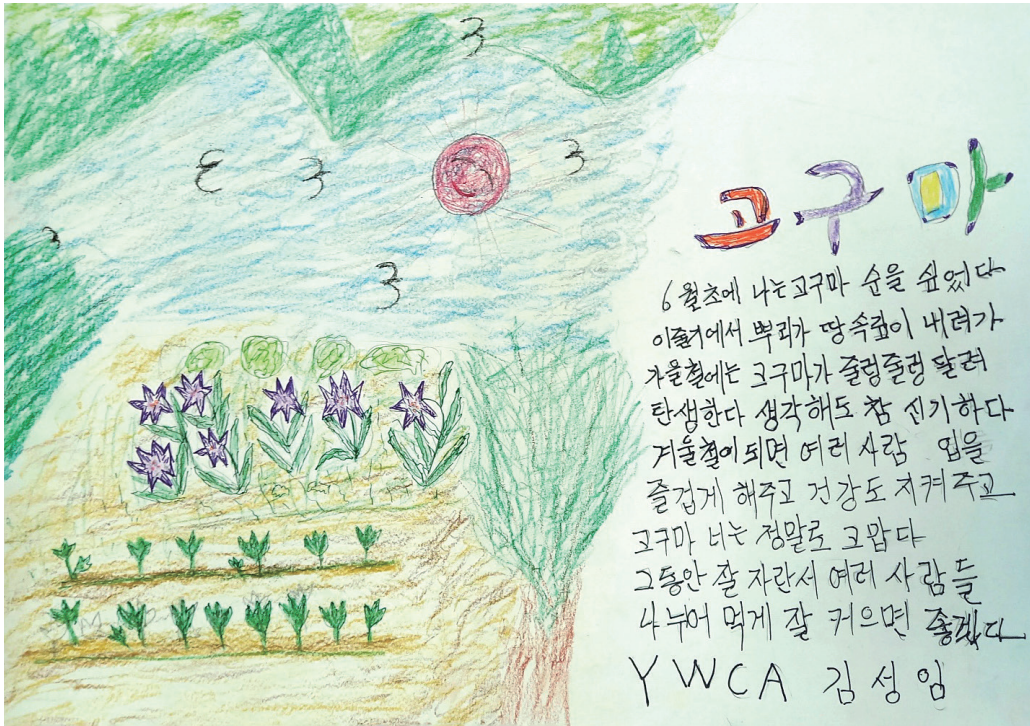 고구마
6월초에 나는 고구마 순을 싶었다
이줄거에서 뿌리가 땅속깊이 내려가
가을철에는 고구마가 줄렁줄렁 달려
탄생한다 생각해도 참 신기하다
겨울철이 되면 여러 사람 입을
즐겁게 해주고 건강도 지켜주고
고구마 너는 정말로 고맙다
그동안 잘 자란서 여러 사람들
나누어 먹게 잘 커으면 좋겠다
YWCA 김성임